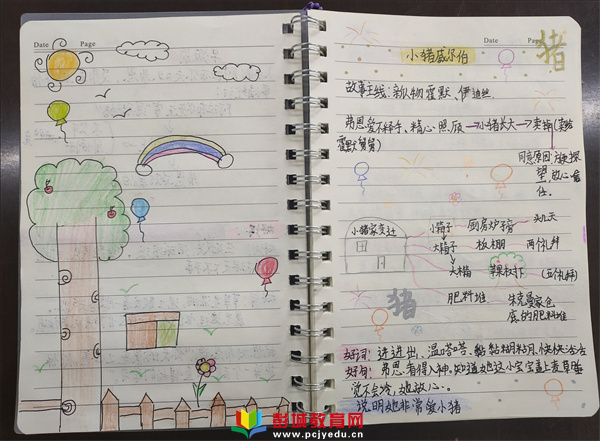 Date Page
Date Page
小猪威尔伯
猪
故事主线：新人物霍默、伊迪丝
弗恩爱不释手、精心照顾→小猪长大→卖掉(卖给
霍默舅舅)
同意原因：
望,放心
任。
小猪家变迁
小箱子 厨房炉子旁 头几天
大箱子 板棚 两个礼拜
大木箱 苹果树下 (五个礼拜)
猪
肥料堆 朱克曼家仓
底的肥料堆
好词：进进出出、温嗒嗒、黏黏糊糊、快快活活
好句：弗恩看得入神,知道她这小宝宝盖上麦草睡
觉不会冷,她放心。
说明她非常爱小猪
彭城教育网
www.pcjyedu.cn